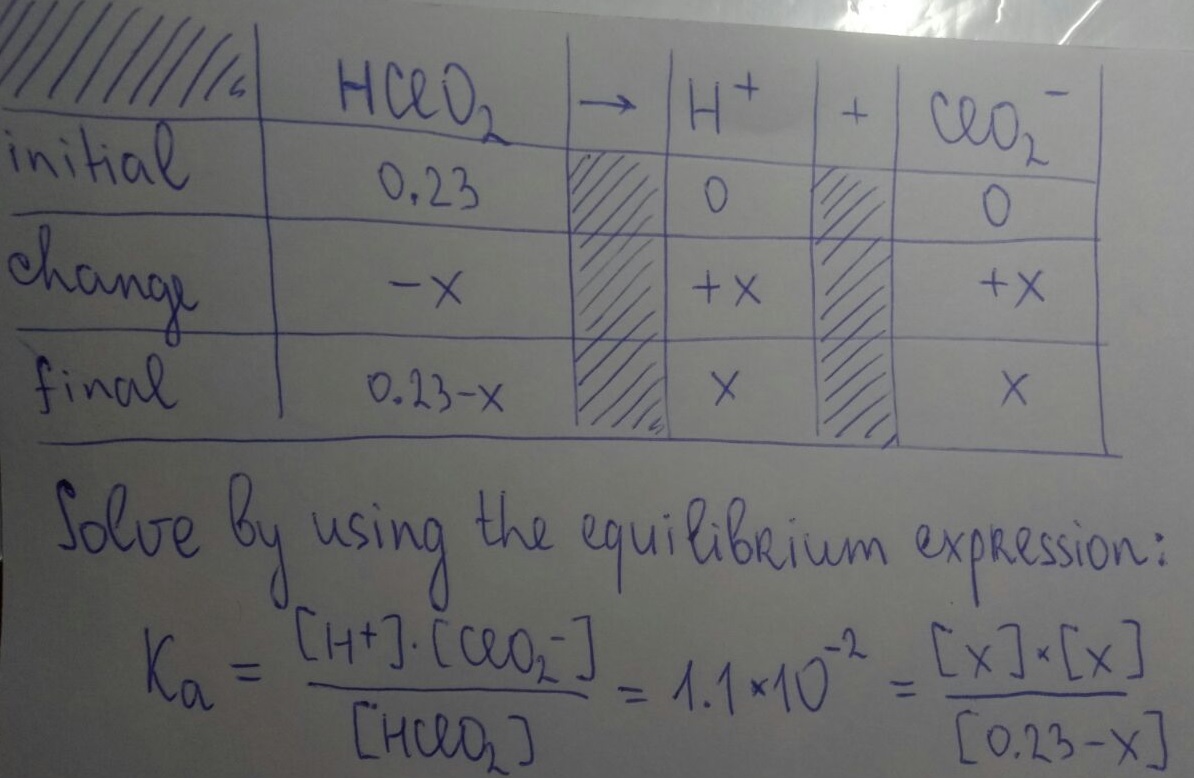 HClO₂ → H⁺ + ClO₂⁻
initial 0.23 0 0
change -x +x +x
final 0.23-x x x
Solve by using the equilibrium expression:
Ka = [H+]·[ClO₂⁻] / [HClO₂] = 1.1×10⁻² = [x]×[x] / [0.23-x]